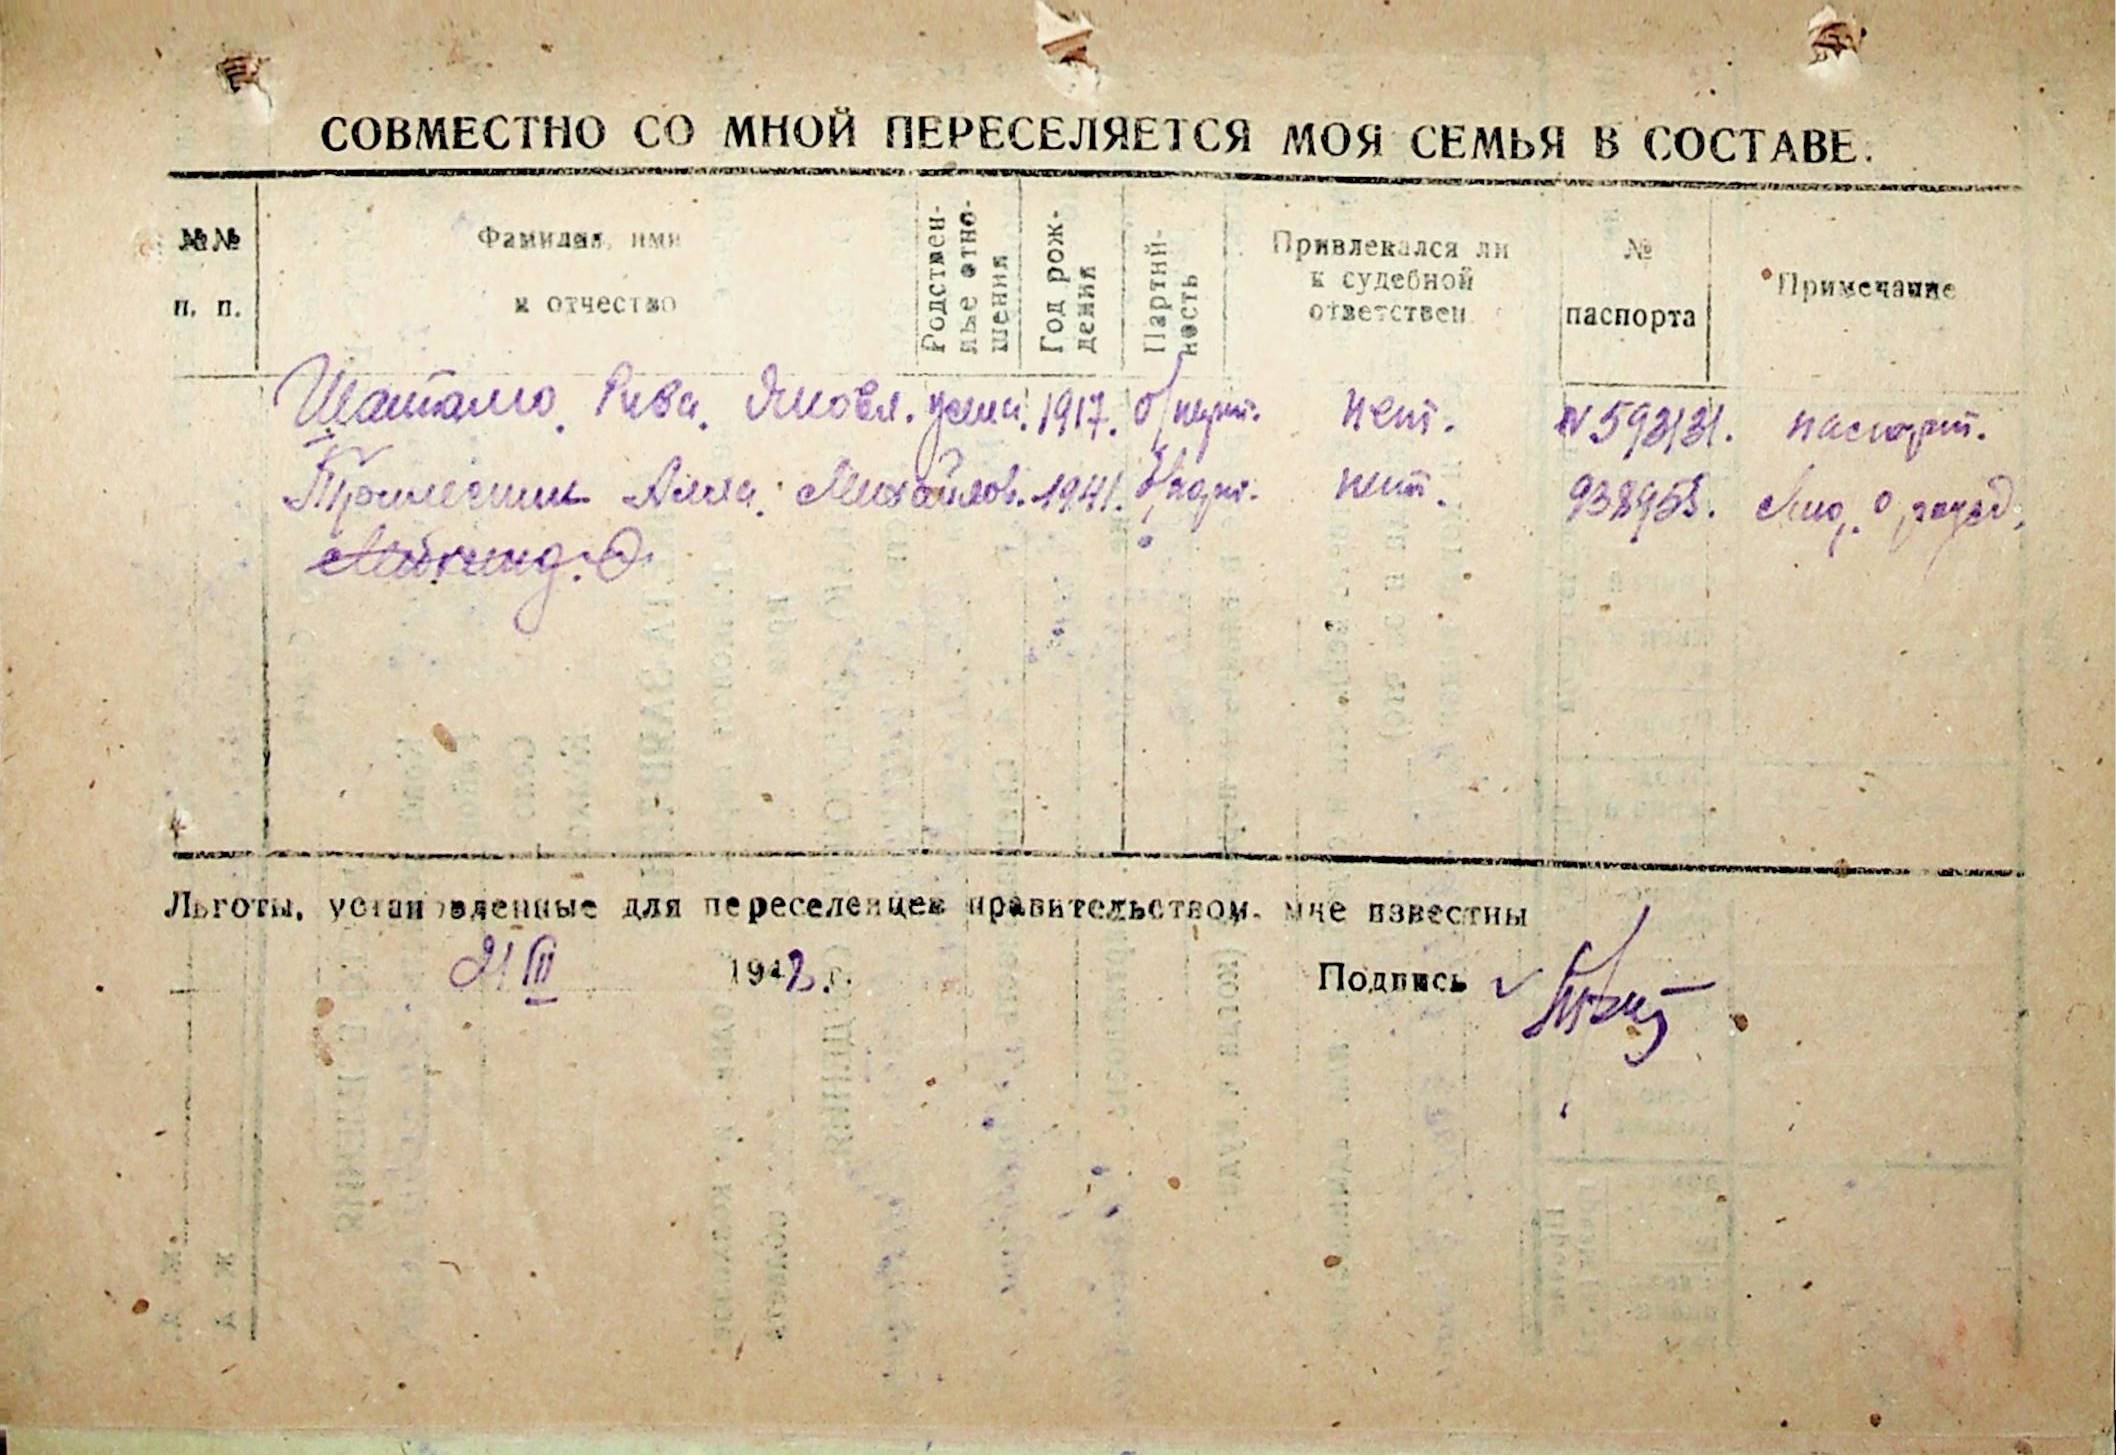 СОВМЕСТНО СО МНОЙ ПЕРЕСЕЛЯЕТСЯ МОЯ СЕМЬЯ В СОСТАВЕ.
№№ п. п.
Фамилия, имя и отчество
Родственные отношения
Год рождения
Партийность
Привлекался ли к судебной ответствен
№ паспорта
Примечание
Рива Яковл. жена 1917. б/парт. нет. N 593131. паспорт.
Алла Михайлов. 1941. б/парт. нет. 938953.
Льготы, установленные для переселенцев правительством, мне известны
21 III 1942 г. Подпись